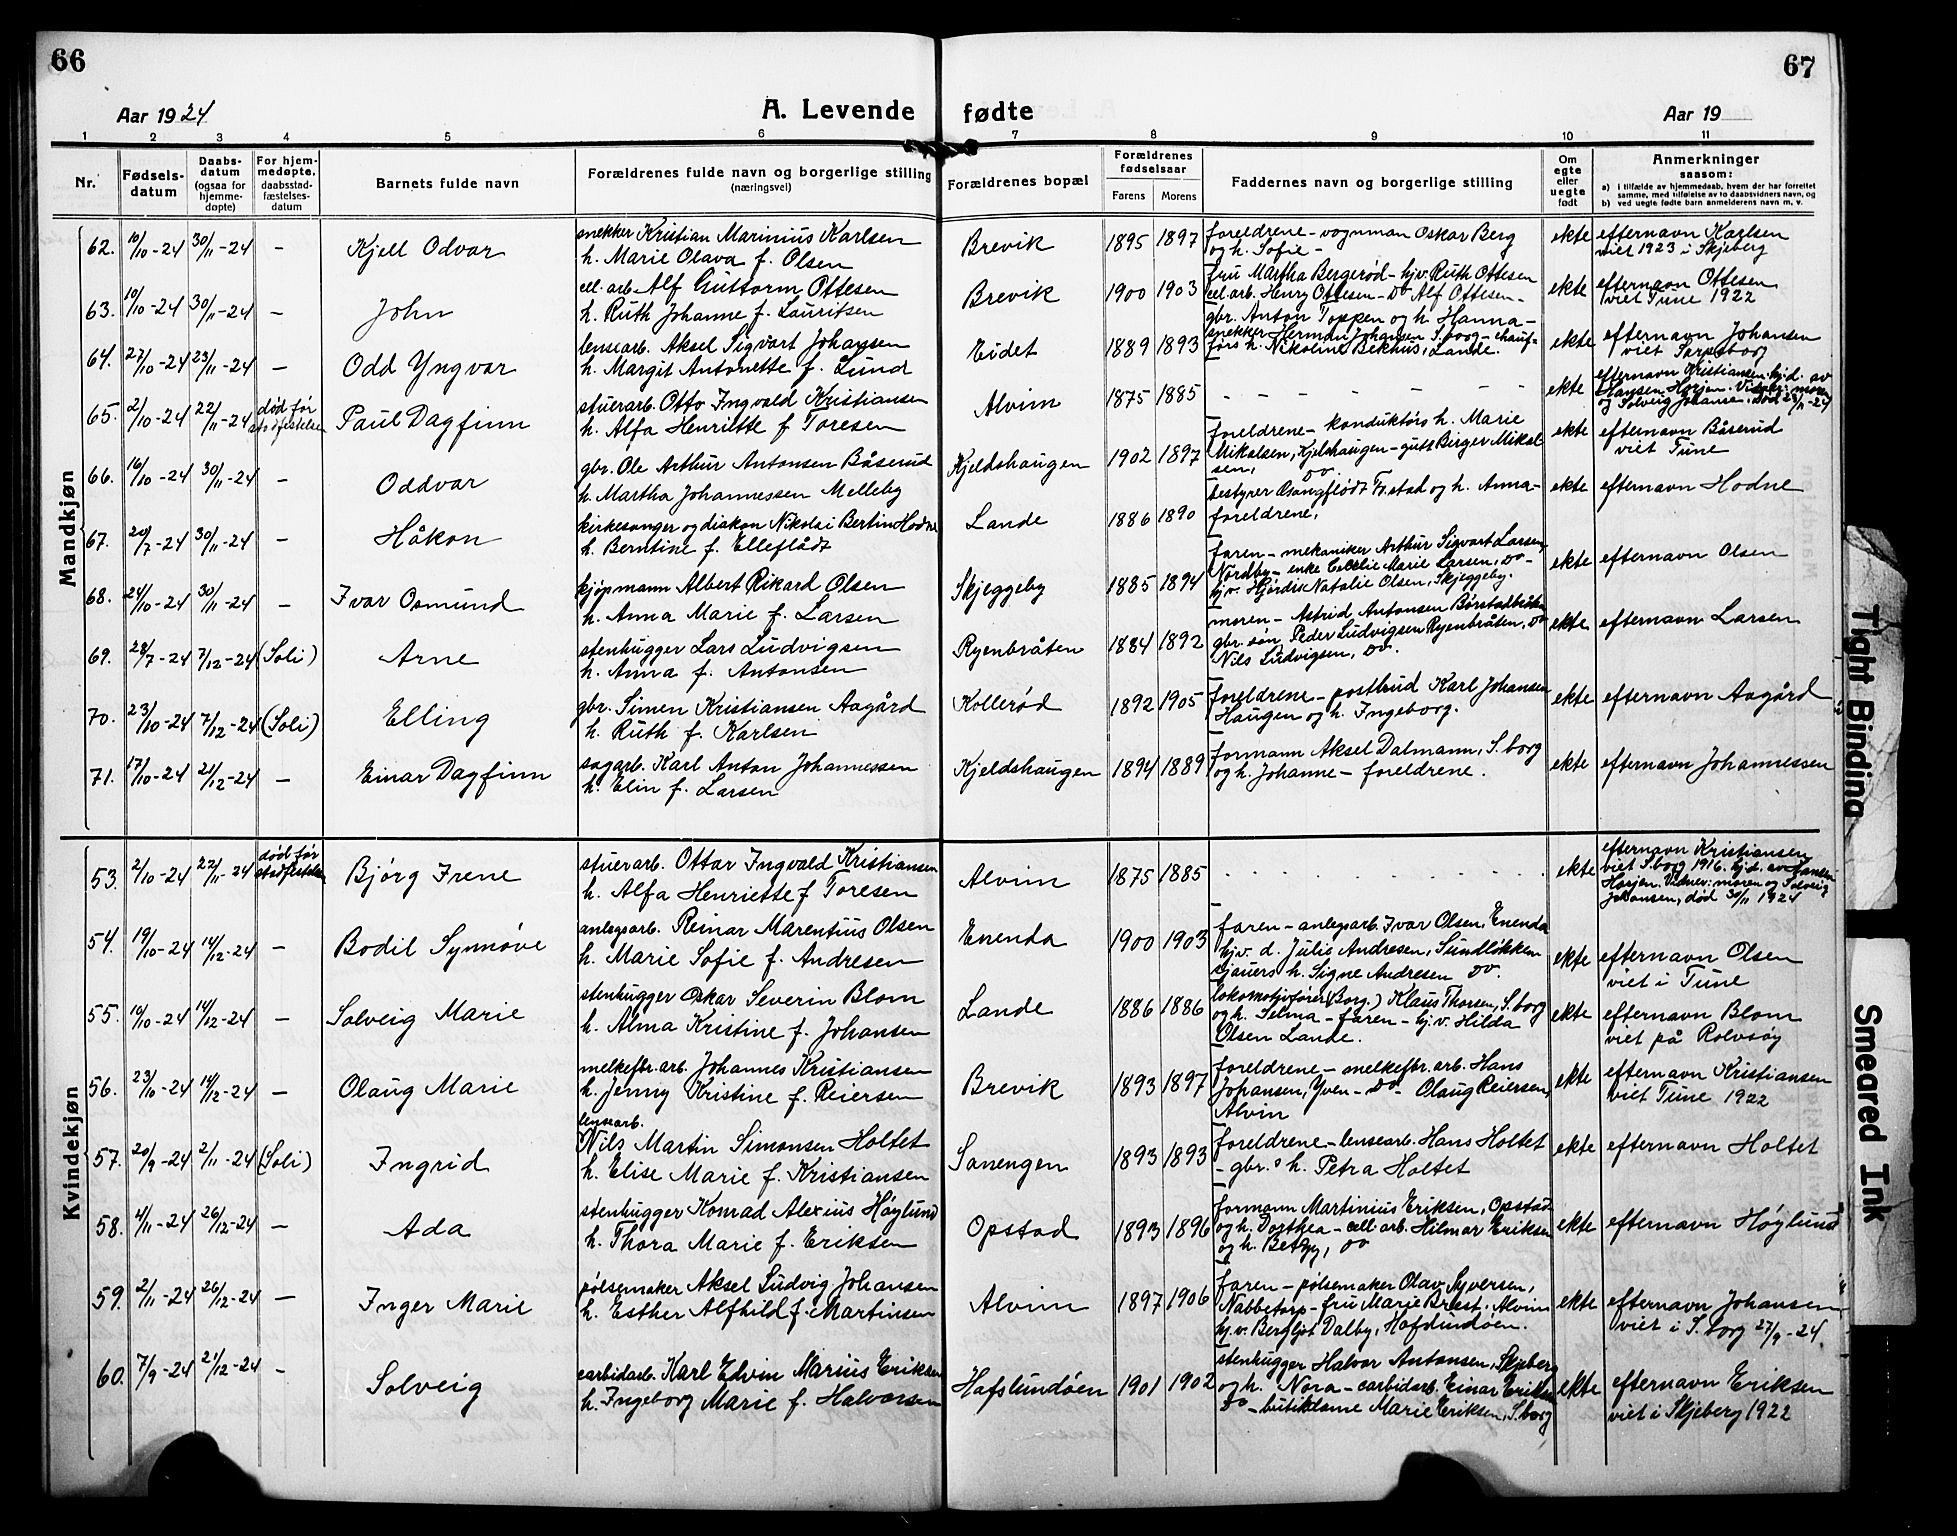 66
67
Aar 1924
A. Levende fødte
Aar 19
1 2 3 4 5 6 7 8 9 10 11
Nr.
Fødsels-
datum
Daabs-
datum
(ogsaa for
hjemme-
døpte)
For hjem-
medøpte,
daabsstad-
fæstelses-
datum
Barnets fulde navn
Forældrenes fulde navn og borgerlige stilling
(næringsvei)
Forældrenes bopæl
Forældrenes
fødselsaar
Farens Morens
Faddernes navn og borgerlige stilling
Om
egte
eller
uegte
født
Anmerkninger
saasom:
a) i tilfælde av hjemmedaab, hvem der har forrettet
samme, med tilføielse av to daabsvidners navn, og
b) ved uegte fødte barn anmelderens navn m. v.
Mandkjøn
62. 10/10-24 30/11-24 - Kjell Odvar
snekker Kristian Marinius Karlsen
h. Marie Olava f. Olsen
Brevik 1895 1897
foreldrene - vognman Oskar Berg
og h. Sofie -
ekte efternavn Karlsen
viet 1923 i Skjeberg
63. 10/10-24 30/11-24 - John
cell. arb. Alf Guttorm Ottesen
h. Ruth Johanne f. Lauritsen
Brevik 1900 1903
fru Martha Bergerød - hjv. Ruth Ottesen
cell. arb. Henry Ottesen - Do Alf Ottesen -
ekte efternavn Ottesen
viet Tune 1922
64. 27/10-24 23/11-24 - Odd Yngvar
lensearb. Aksel Sigvart Johansen
h. Margit Antonette f. Lund
Eidet 1889 1893
gbr. Anton Toppen og h. Hanna -
snekker Herman Johansen S.borg - chauf-
førs h. Nikoline Bekhus, Lande.
ekte efternavn Johansen
viet Sarpsborg
65. 2/10-24 22/11-24 død før
stadfestelse
Paul Dagfinn
stuerarb. Otto Ingvald Kristiansen
h. Alfa Henriette f Toresen
Alvim 1875 1885 - - - - - -
ekte efternavn Kristiansen. hj.d. av
Hansen Horjen.
og Solveig Johanse. død 23/11-24
66. 16/10-24 30/11-24 - Oddvar
gbr. Ole Arthur Antonsen Båserud
h. Martha Johannessen Melleby
Kjeldshaugen 1902 1897
foreldrene - konduktørs h. Marie
Mikalsen, Kjelshaugen - gutt Birger Mikal
sen, do.
ekte efternavn Båserud
viet Tune
67. 20/7-24 30/11-24 - Håkon
kirkesanger og diakon Nikolai Bertin Hodne
h. Berntine f. Elleflådt
Lande 1886 1890
bestyrer Osangflødt Fr.stad og h. Anna -
foreldrene,
ekte efternavn Hodne
68. 24/10-24 30/11-24 - Ivar Osmund
kjøpmann Albert Rikard Olsen
h. Anna Marie f. Larsen
Skjeggeby 1885 1894
faren - mekaniker Arthur Sigvart Larsen,
Nordby - enke Cecilie Marie Larsen, Do -
hjv. Hjørdis Natalie Olsen, Skjeggeby.
ekte efternavn Olsen
69. 28/7-24 7/12-24 (Soli) Arne
stenhugger Lars Ludvigsen
h. Anna f. Antonsen
Ryenbråten 1884 1892
moren - Astrid Antonsen Børstadbråten
gbr. søn Peder Ludvigsen Ryenbråten, Do
Nils Ludvigsen, Do.
ekte efternavn Larsen
70. 23/10-24 7/12-24 (Soli) Elling
gbr. Simen Kristiansen Aagård
h. Ruth f. Karlsen
Kollerød 1892 1905
foreldrene - postbud Karl Johansen
Haugen og h. Ingeborg.
ekte efternavn Aagård
71. 17/10-24 21/12-24 - Einar Dagfinn
sagarb. Karl Anton Johannessen
h. Elin f. Larsen
Kjeldshaugen 1894 1889
formann Aksel Dalmann, S.borg
og h. Johanne - foreldrene.
ekte efternavn Johannessen
Kvindekjøn
53. 2/10-24 22/11-24 død før
stadfestelse
Bjørg Irene
stuerarb. Ottar Ingvald Kristiansen
h. Alfa Henriette f Toresen
Alvim 1875 1885 . . . . . . . . .
ekte efternavn Kristiansen
viet S.borg 1916. hj.d. av Hansen
Horjen. Vidner: moren og Solveig
Johansen, død 30/11 1924
54. 19/10-24 14/12-24 - Bodil Synnøve
anlegsarb. Reinar Marentius Olsen
h. Marie Sofie f. Andresen
Enenda 1900 1903
faren - anlegsarb. Ivar Olsen, Enenda
hjv. d. Julie Andresen, Sundløkken
sjauers h. Signe Andresen Do.
ekte efternavn Olsen
viet i Tune
55. 19/10-24 14/12-24 - Solveig Marie
stenhugger Oskar Severin Blom
h. Alma Kristine f. Johansen
Lande 1886 1886
lokomotivfører (Borg.) Klaus Thorsen, S.borg
og h. Selma - faren - hj.v. Hilda
Olsen Lande.
ekte efternavn Blom
viet på Rolvsøy
56. 23/10-24 14/12-24 - Olaug Marie
melkefbr. arb. Johannes Kristiansen
h. Jenny Kristine f. Reiersen
Brevik 1893 1897
foreldrene - melkefbr. arb. Hans
Johansen, Yven - Do - Olaug Reiersen,
Alvim
ekte efternavn Kristiansen
viet Tune 1922
57. 20/9-24 2/11-24 (Soli) Ingrid
lensearb.
Nils Martin Simonsen Holtet
h. Elise Marie f. Kristiansen
Sanengen 1893 1893
foreldrene - lensearb. Hans Holtet
- gbr. s h. Petra Holtet
ekte efternavn Holtet
58. 4/11-24 26/12-24 - Ada
stenhugger Konrad Alexius Høylund
h. Thora Marie f. Eriksen
Opstad 1893 1896
formann Martinius Eriksen, Opstad
og h. Dorthea - cell. arb. Hilmar Eriksen
og h. Betzy, do
ekte efternavn Høylund
59. 2/11-24 26/12-24 - Inger Marie
pølsemaker Aksel Ludvig Johansen
h. Esther Alfhild f. Martinsen
Alvim 1897 1906
faren - pølsemaker Olav Syversen,
Nabbetorp - fru Marie Brest. Alvim
hj.v. Bergljot Dalby, Hafslundøen.
ekte efternavn Johansen
viet i S.borg 27/9-24.
60. 7/9-24 21/12-24 - Solveig
carbidarb. Karl Edvin Marius Eriksen
h. Ingeborg Marie f. Halvorsen
Hafslundøen 1901 1902
stenhugger Halvor Antonsen, Skjeberg
og h. Nora - carbidarb. Einar Eriksen
Do - butikdame Marie Eriksen, S.borg
ekte efternavn Eriksen
viet i Skjeberg 1922
Tight Binding
Smeared Ink